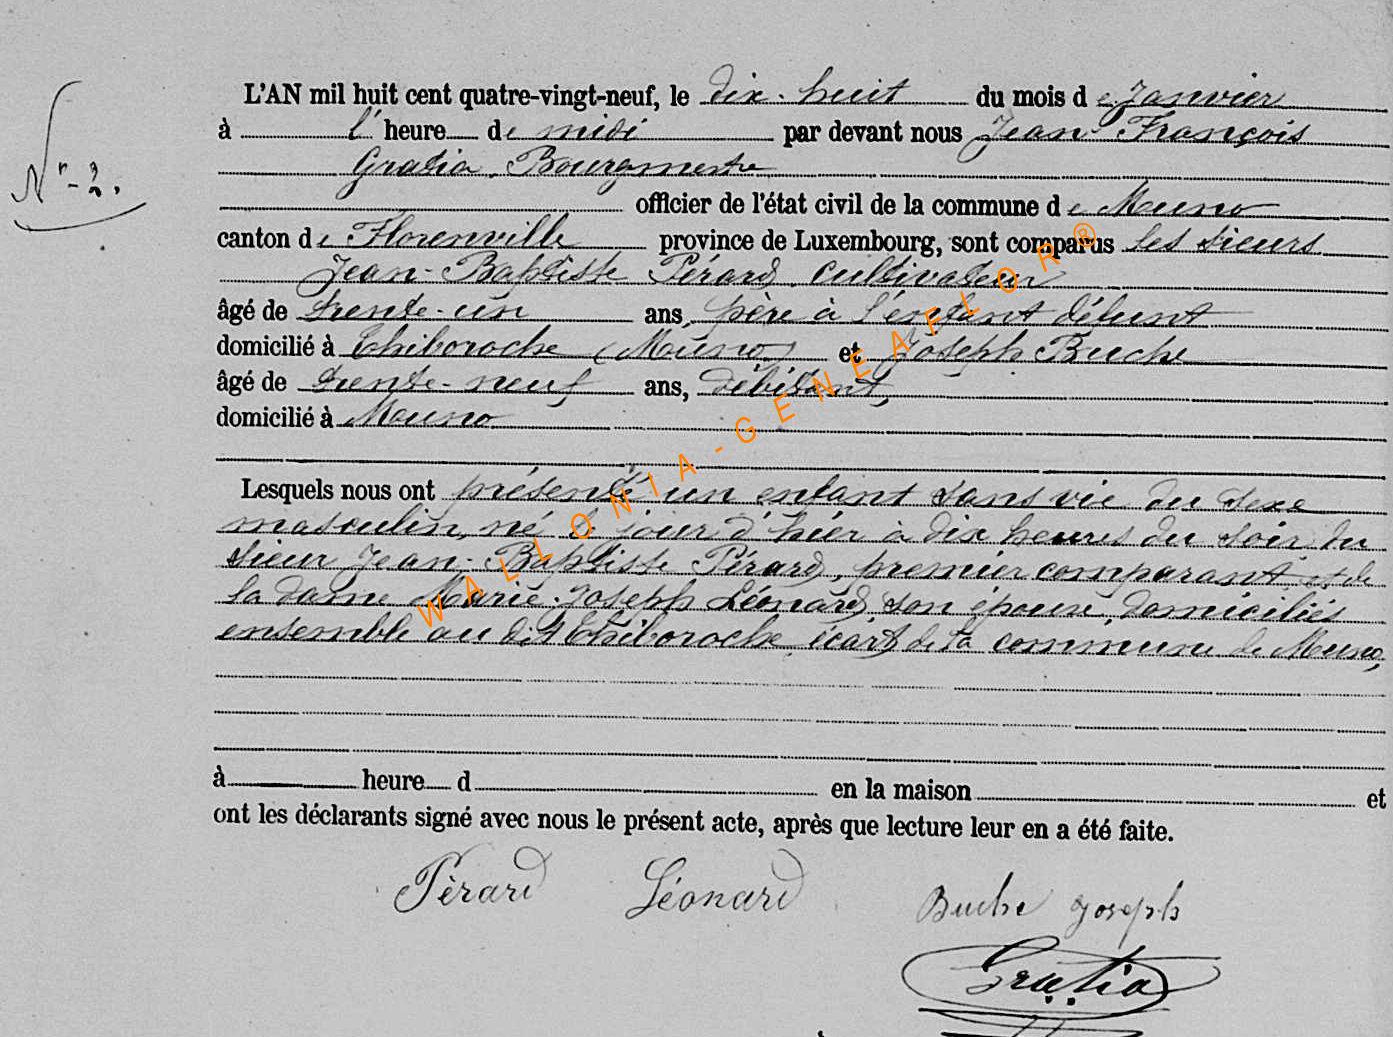 L'AN mil huit cent quatre-vingt-neuf, le dix-huit du mois de Janvier
Nr-2.
à l' heure de midi par devant nous Jean-François
Gratia, Bourgmestre
officier de l'état civil de la commune de Muno
canton de Florenville province de Luxembourg, sont comparus les sieurs
Jean-Baptiste Pérard, cultivateur
âgé de trente-un ans, père à l'enfant défunt
domicilié à Thiboroche (Muno) et Joseph Buche
âgé de trente-neuf ans, débitant,
domicilié à Muno
Lesquels nous ont présenté un enfant sans vie du sexe
masculin, né le jour d'hier à dix heures du soir, du
sieur Jean-Baptiste Pérard, premier comparant et de
la dame Marie-Joseph Léonard, son épouse, domiciliés
ensemble au dit Thiboroche, écart de la commune de Muno,
à heure d en la maison et
ont les déclarants signé avec nous le présent acte, après que lecture leur en a été faite.
Pérard Léonard Buche Joseph
Gratia
WALLONIA-GENEAFLOR®